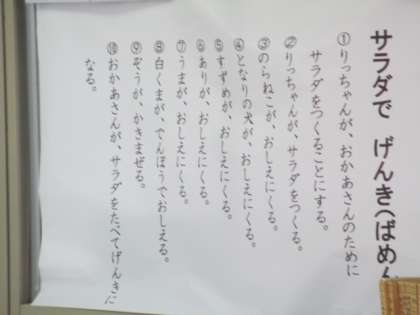 サラダで げんき(ばめん
①りっちゃんが、おかあさんのために
サラダをつくることにする。
②りっちゃんが、サラダをつくる。
③のらねこが、おしえにくる。
④となりの犬が、おしえにくる。
⑤すずめが、おしえにくる。
⑥ありが、おしえにくる。
⑦うまが、おしえにくる。
⑧白くまが、でんぽうでおしえる。
⑨ぞうが、かきまぜる。
⑩おかあさんが、サラダをたべてげんきに
なる。